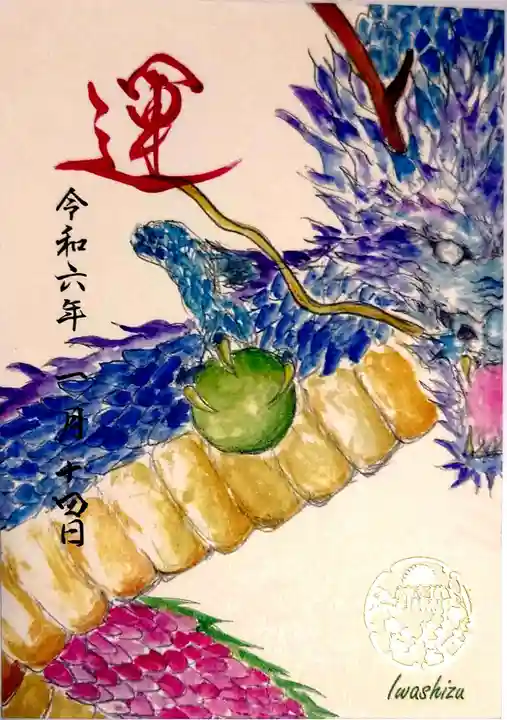 運
令和六年 一月十四日
Iwashizu